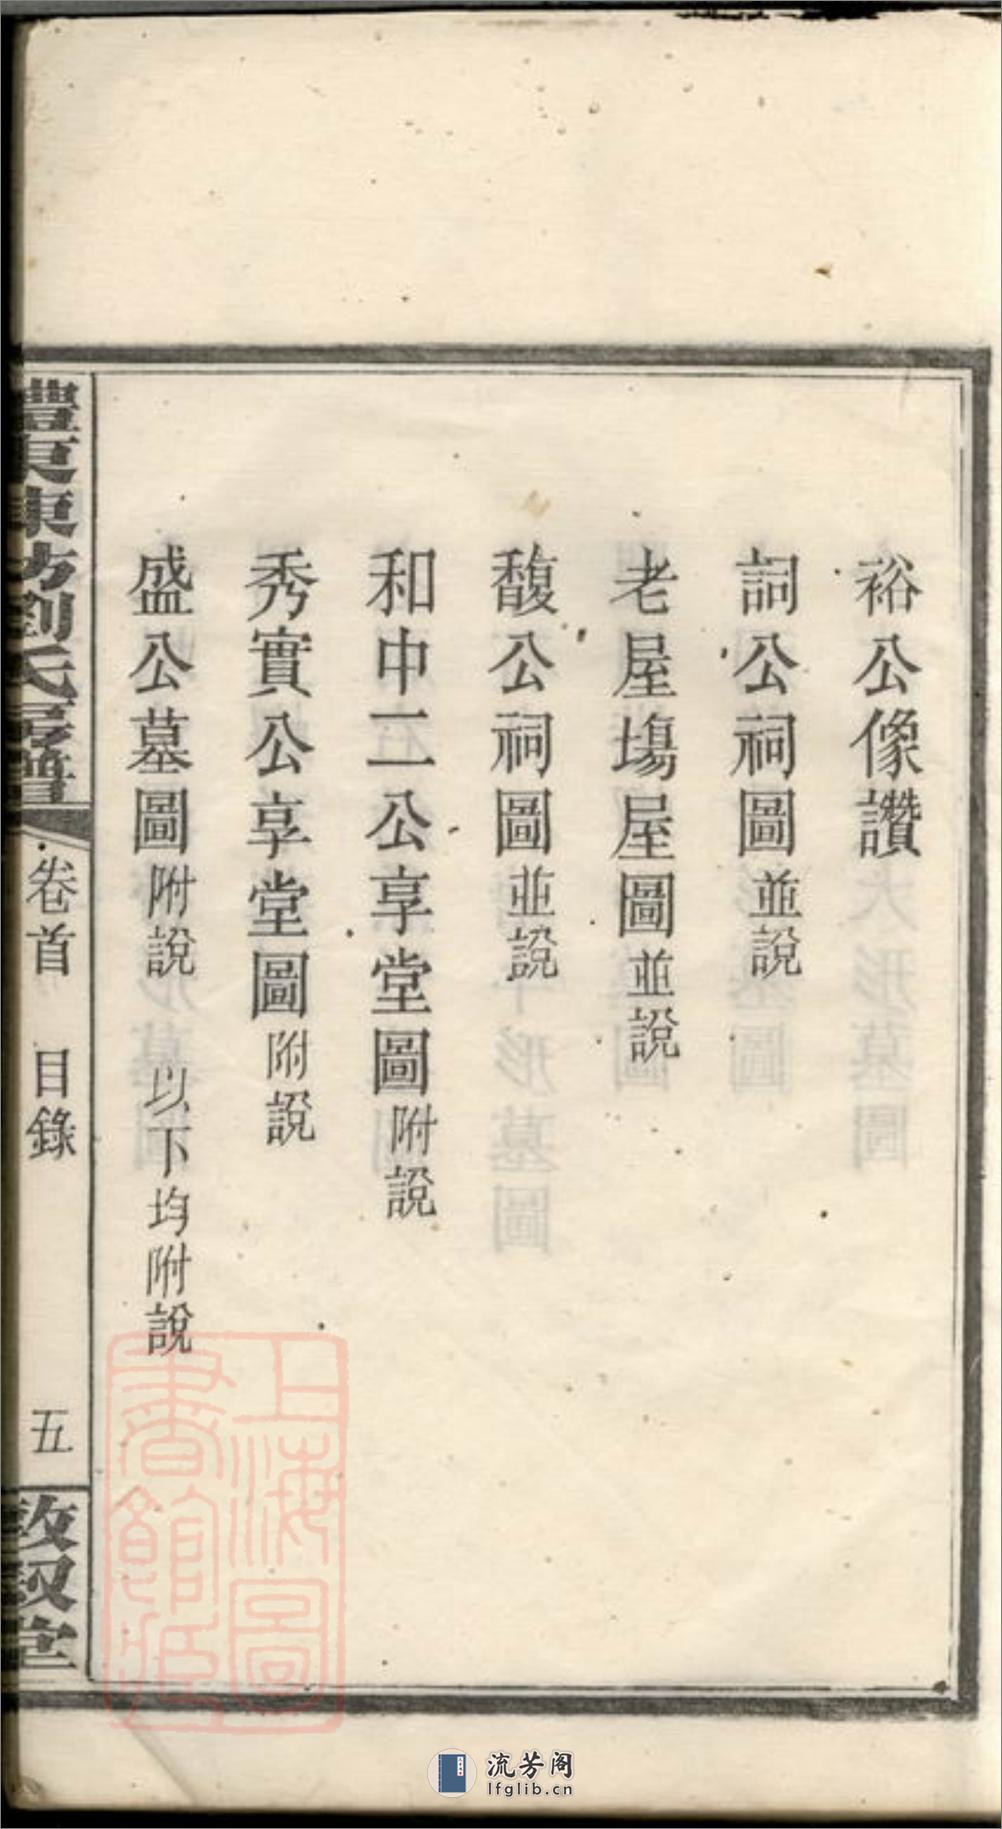 裕公像讚
詞公祠圖並說
老屋塲屋圖並說
馥公祠圖並說
和中二公享堂圖附說
秀實公享堂圖附說
盛公墓圖附說 以下均附說
東坊劉氏
卷首 目錄 五
上海圖書館藏
流芳阁
lfglib.cn